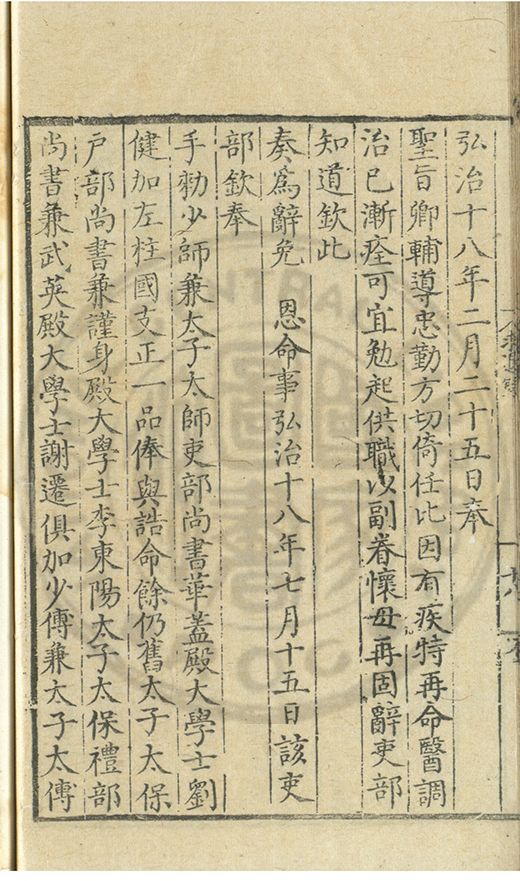 弘治十八年二月二十五日奉
聖旨卿輔導忠勤方切倚任比因有疾特再命醫調
治已漸痊可宜勉起供職以副眷懷毋再固辭吏部
知道欽此
奏爲辭免 恩命事弘治十八年七月十五日該吏
部欽奉
手勑少師兼太子太師吏部尚書華蓋殿大學士劉
健加左柱國支正一品俸與誥命餘仍舊太子太保
戶部尚書兼謹身殿大學士李東陽太子太保禮部
尚書兼武英殿大學士謝遷俱加少傅兼太子太傅